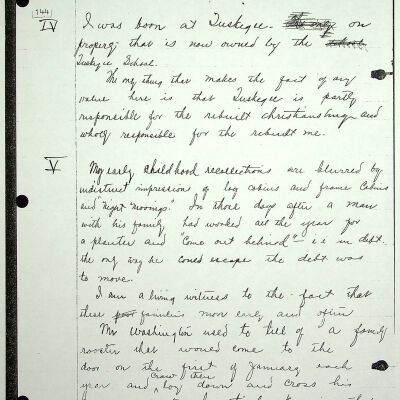 144
IV I was born at Tuskegee - on
property that is now owned by the school
Tuskegee School.
The only thing that makes the fact of any
value here is that Tuskegee is partly
responsible for the rebuilt and
wholly responsible for the rebuilt me.
V My early childhood recollections are blurred by
indistinct impressions of log cabins and frame cabins
and "night movings." In those days after a man
with his family had worked all the year for
a planter and "Come out behind" - i.e. in debt
the only way he could escape the debt was
to move.
I am a living witness to the fact that
these families move early and often
Mr Washington used to tell of a family
rooster that would come to the
door on the first of January each
year and crow three lay down and cross his